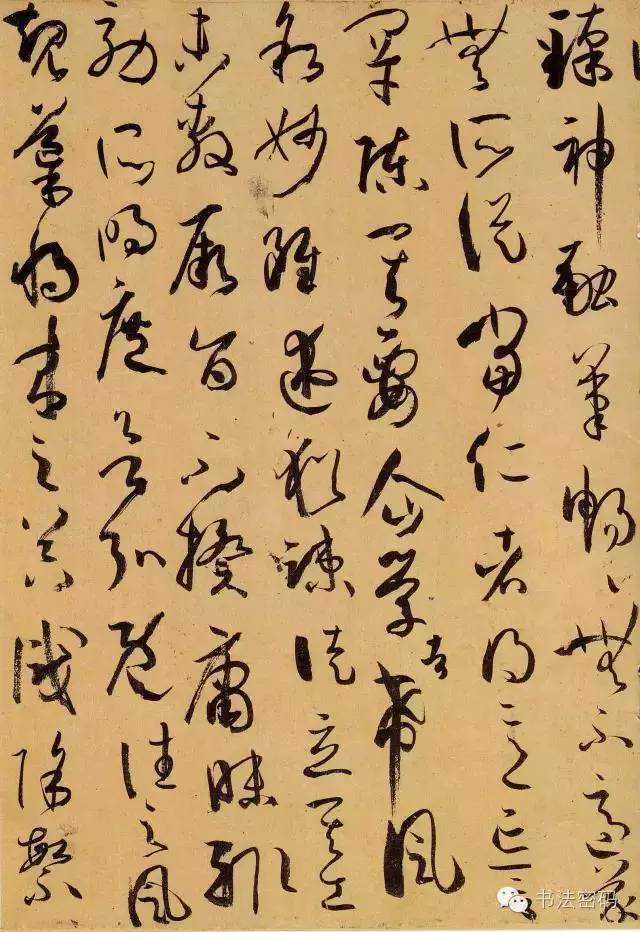 臻神融筆暢〻無不適蒙
無所從當仁者得意忘言
罕陳其要企學者希風
敘妙雖述猶疎徒立其工
未敷厥旨不揆庸昧輒
効所明庶欲弘既往之風
規導将来之器識除繁
书法密码